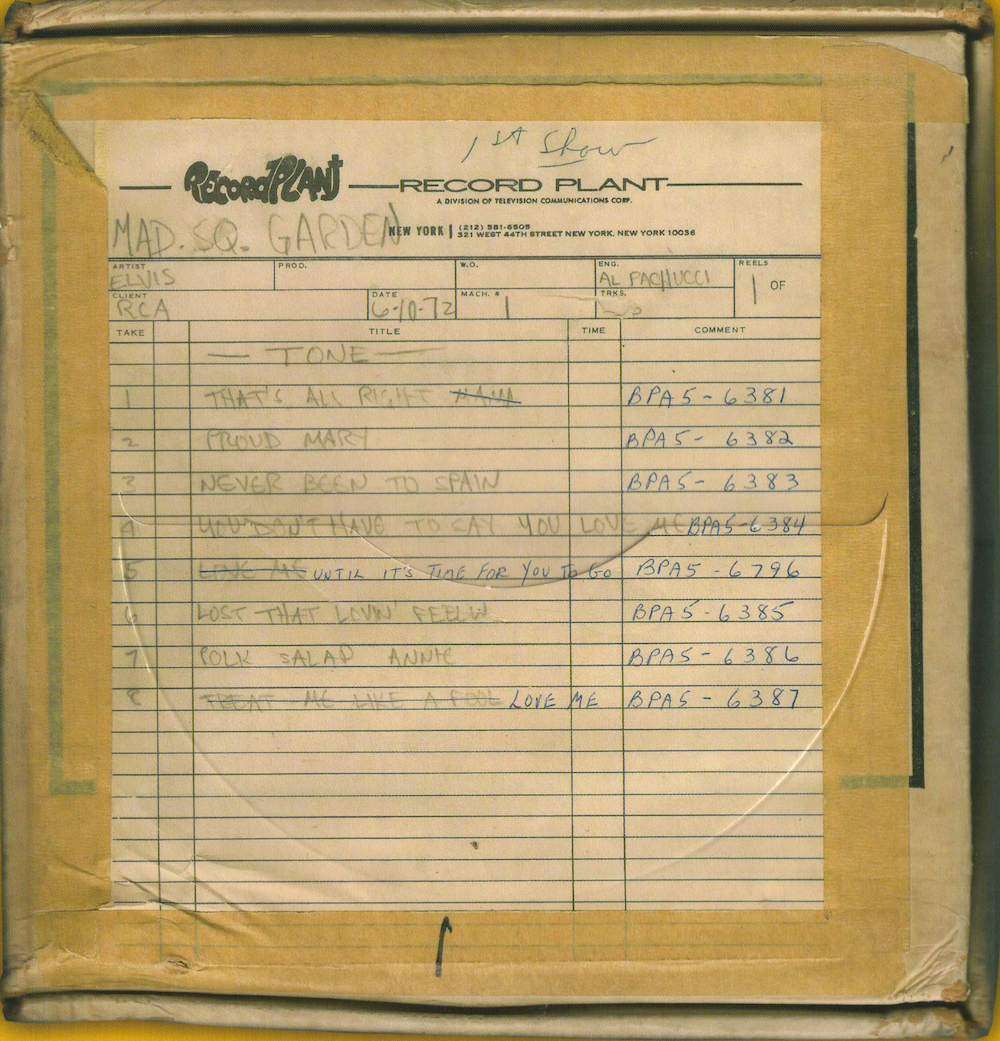 1ST Show
RECORD PLANT RECORD PLANT
A DIVISION OF TELEVISION COMMUNICATIONS CORP.
MAD. SQ. GARDEN
NEW YORK (212) 581-6505
321 WEST 44TH STREET NEW YORK, NEW YORK 10036
ARTIST PROD. W.O. ENG. REELS
ELVIS AL PACHUCCI 1 OF
CLIENT DATE MACH. # TRKS.
RCA 6-10-72 1
TAKE TITLE TIME COMMENT
— TONE —
1 THAT'S ALL RIGHT MAMA BPA5-6381
2 PROUD MARY BPA5-6382
3 NEVER BEEN TO SPAIN BPA5-6383
4 YOU DON'T HAVE TO SAY YOU LOVE ME BPA5-6384
5 LOVE ME UNTIL IT'S TIME FOR YOU TO GO BPA5-6796
6 LOST THAT LOVIN' FEELIN BPA5-6385
7 POLK SALAD ANNIE BPA5-6386
8 TREAT ME LIKE A FOOL LOVE ME BPA5-6387